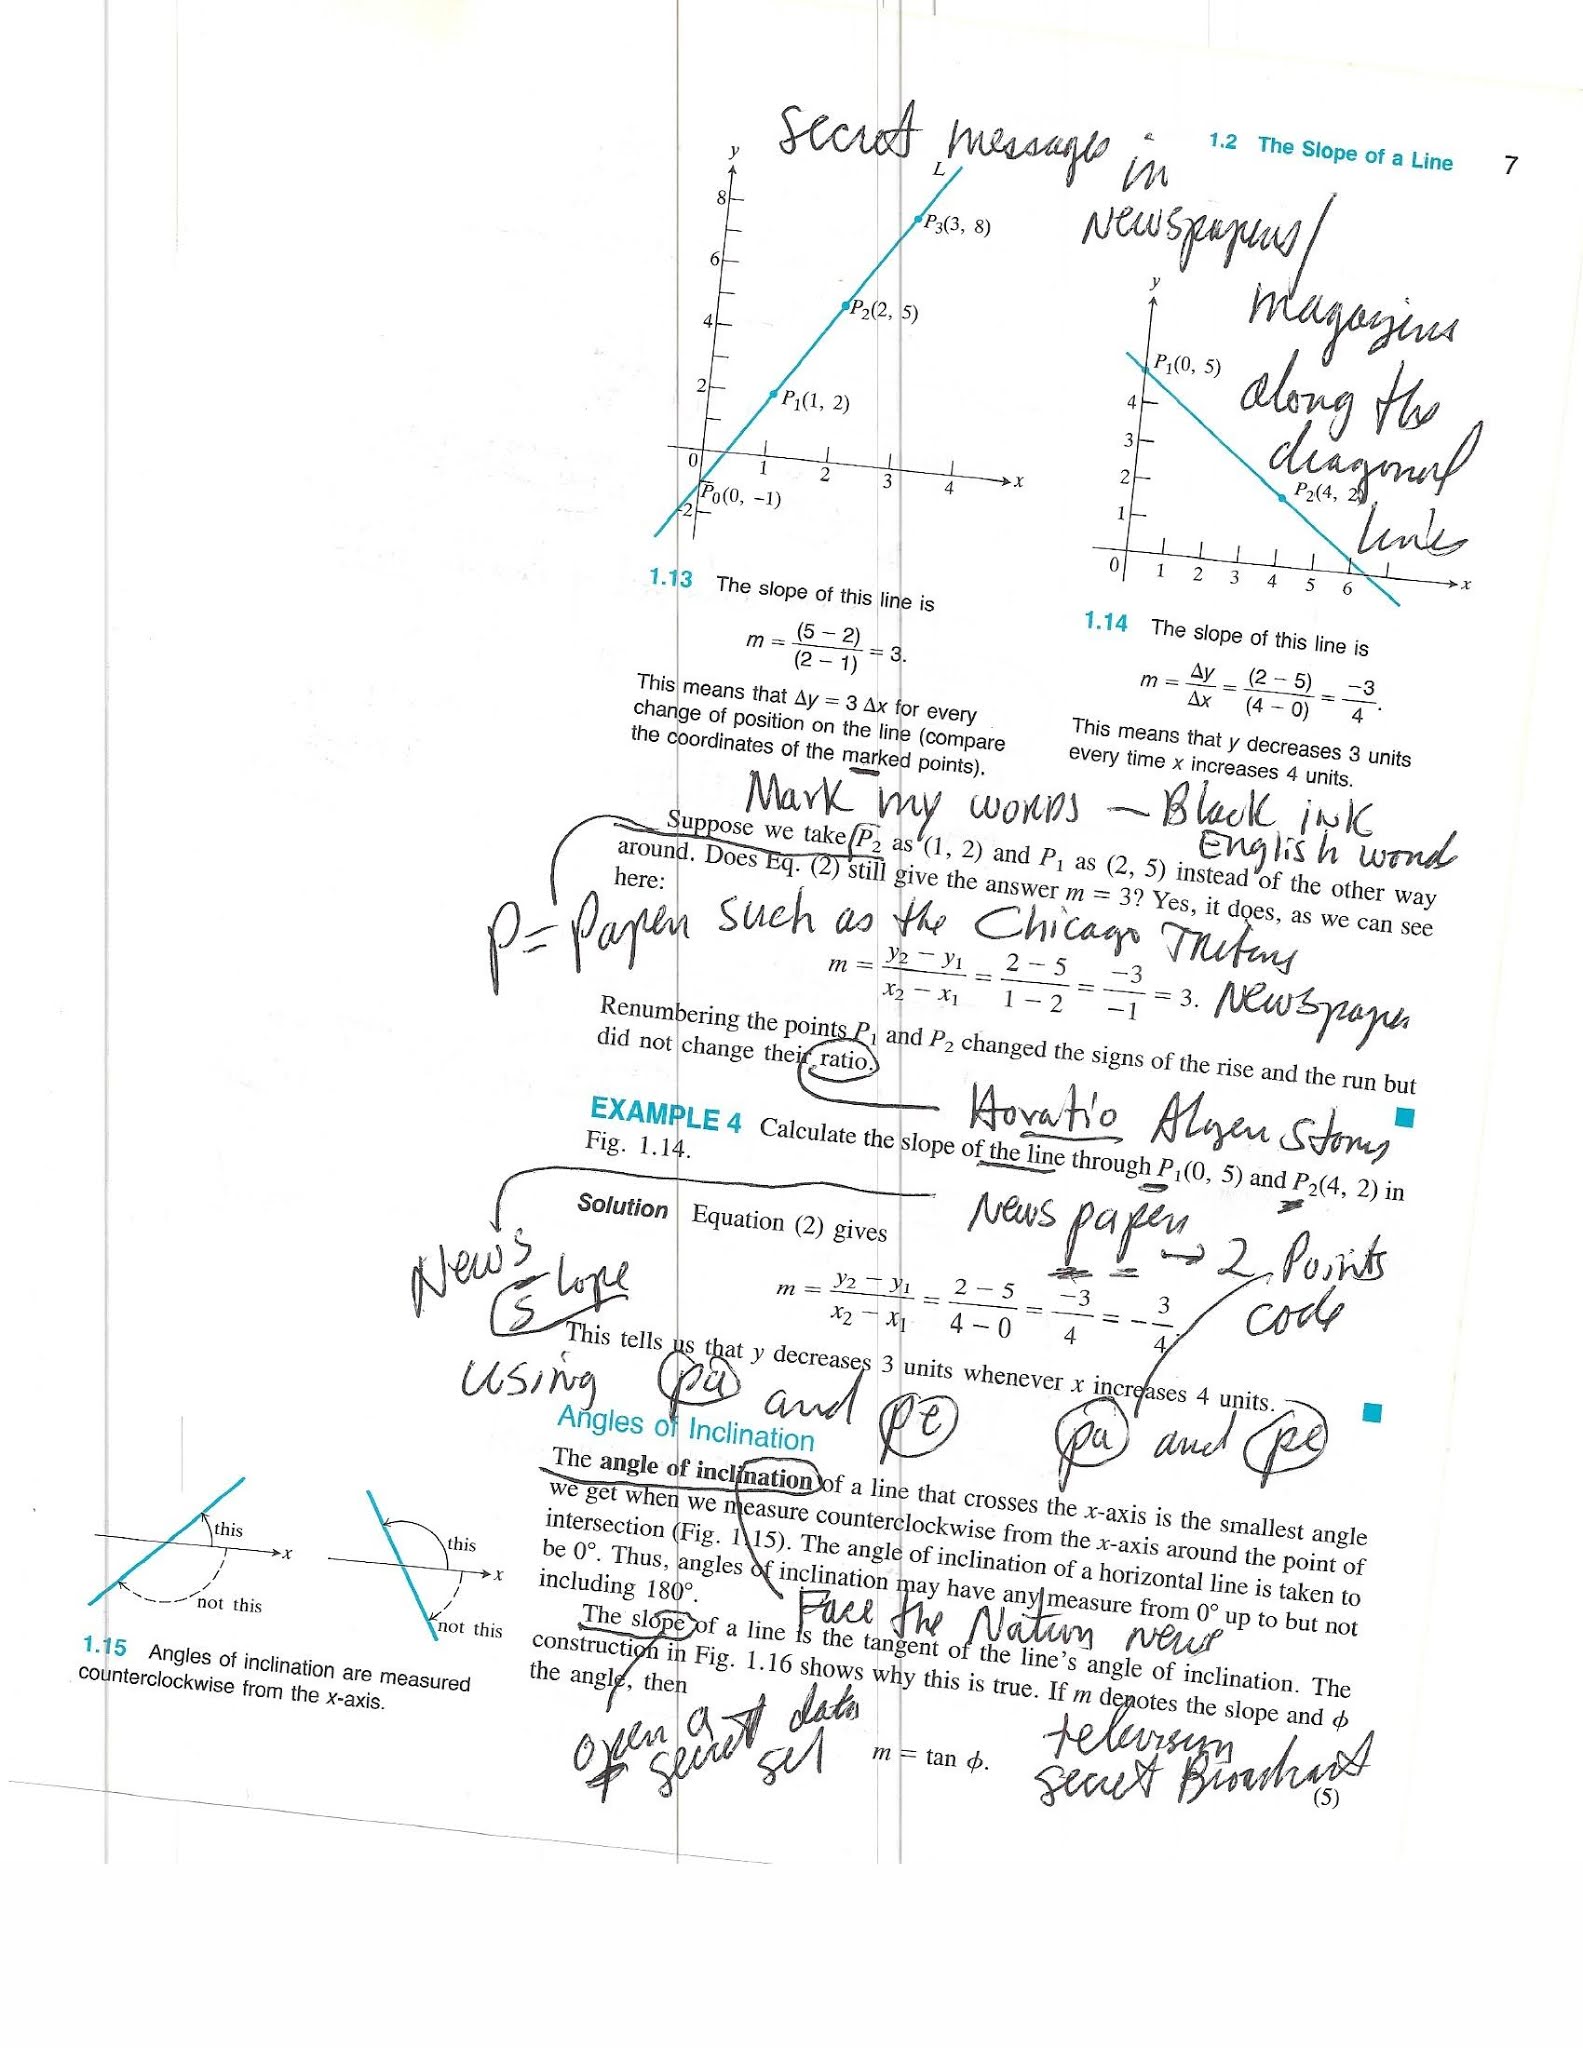 secret messages in
1.2 The Slope of a Line 7
Newspapers/
magazines
along the
diagonal
lines
y
L
8
P₃(3, 8)
6
P₂(2, 5)
4
2
P₁(1, 2)
0 1 2 3 4 x
P₀(0, −1)
−2
y
P₁(0, 5)
4
3
2
P₂(4, 2)
1
0 1 2 3 4 5 6 x
1.13 The slope of this line is
m = (5 − 2)/(2 − 1) = 3.
This means that Δy = 3 Δx for every
change of position on the line (compare
the coordinates of the marked points).
1.14 The slope of this line is
m = Δy/Δx = (2 − 5)/(4 − 0) = −3/4.
This means that y decreases 3 units
every time x increases 4 units.
Mark my words – Black ink
English word
Suppose we take P₂ as (1, 2) and P₁ as (2, 5) instead of the other way
around. Does Eq. (2) still give the answer m = 3? Yes, it does, as we can see
here:
P = Paper such as the Chicago
Newspaper
m = y₂ − y₁/x₂ − x₁ = 2 − 5/1 − 2 = −3/−1 = 3.
Renumbering the points P₁ and P₂ changed the signs of the rise and the run but
did not change their ratio.
Horatio Alger Story
EXAMPLE 4 Calculate the slope of the line through P₁(0, 5) and P₂(4, 2) in
Fig. 1.14.
Newspaper → 2 Points
code
Solution Equation (2) gives
News
Slope
m = y₂ − y₁/x₂ − x₁ = 2 − 5/4 − 0 = −3/4 = −3/4.
This tells us that y decreases 3 units whenever x increases 4 units.
using pa and pe
pa and pe
Angles of Inclination
The angle of inclination of a line that crosses the x-axis is the smallest angle
we get when we measure counterclockwise from the x-axis around the point of
intersection (Fig. 1.15). The angle of inclination of a horizontal line is taken to
be 0°. Thus, angles of inclination may have any measure from 0° up to but not
including 180°.
Face the Nation news
television
secret Broadcast
The slope of a line is the tangent of the line's angle of inclination. The
construction in Fig. 1.16 shows why this is true. If m denotes the slope and ϕ
the angle, then
open a data
secret set
m = tan ϕ.
(5)
this
x
not this
this
x
not this
1.15 Angles of inclination are measured
counterclockwise from the x-axis.